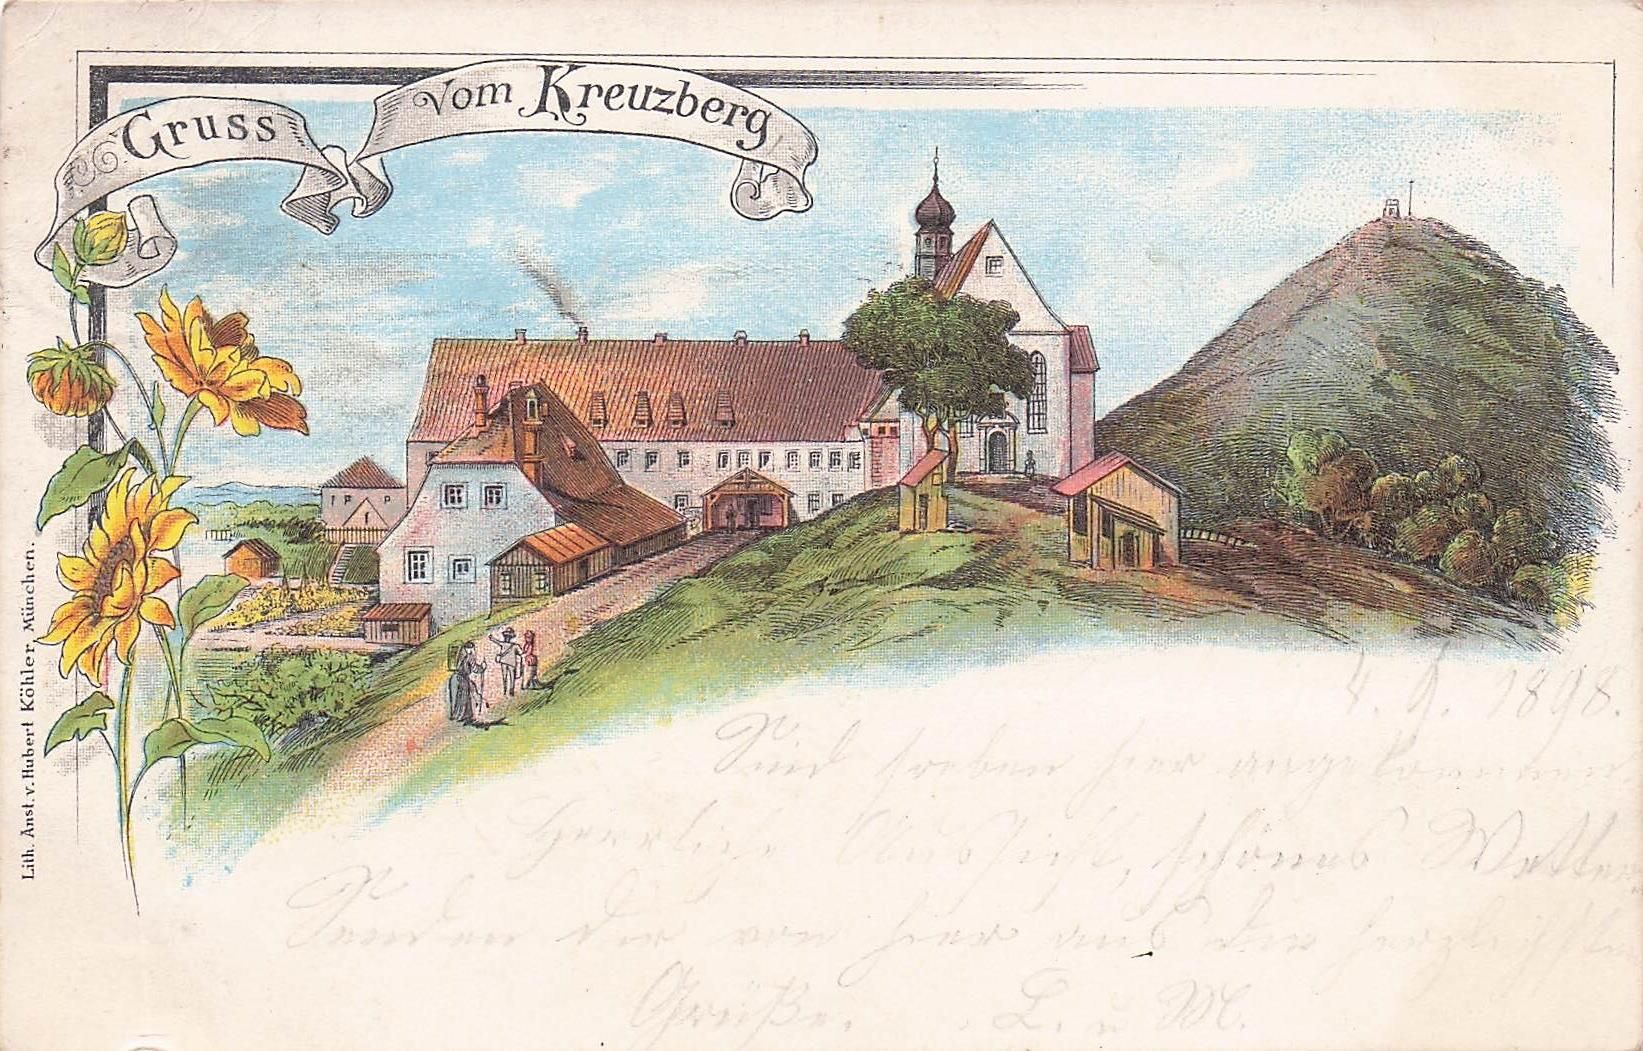 Gruss vom Kreuzberg
Lith. Anst. v. Hubert Köhler, München.
4. 9. 1898.
Sind soeben hier angekommen
Herrliche Aussicht, schönes Wetter
Senden dir von hier aus die herzlichsten
Grüße. L. u M.